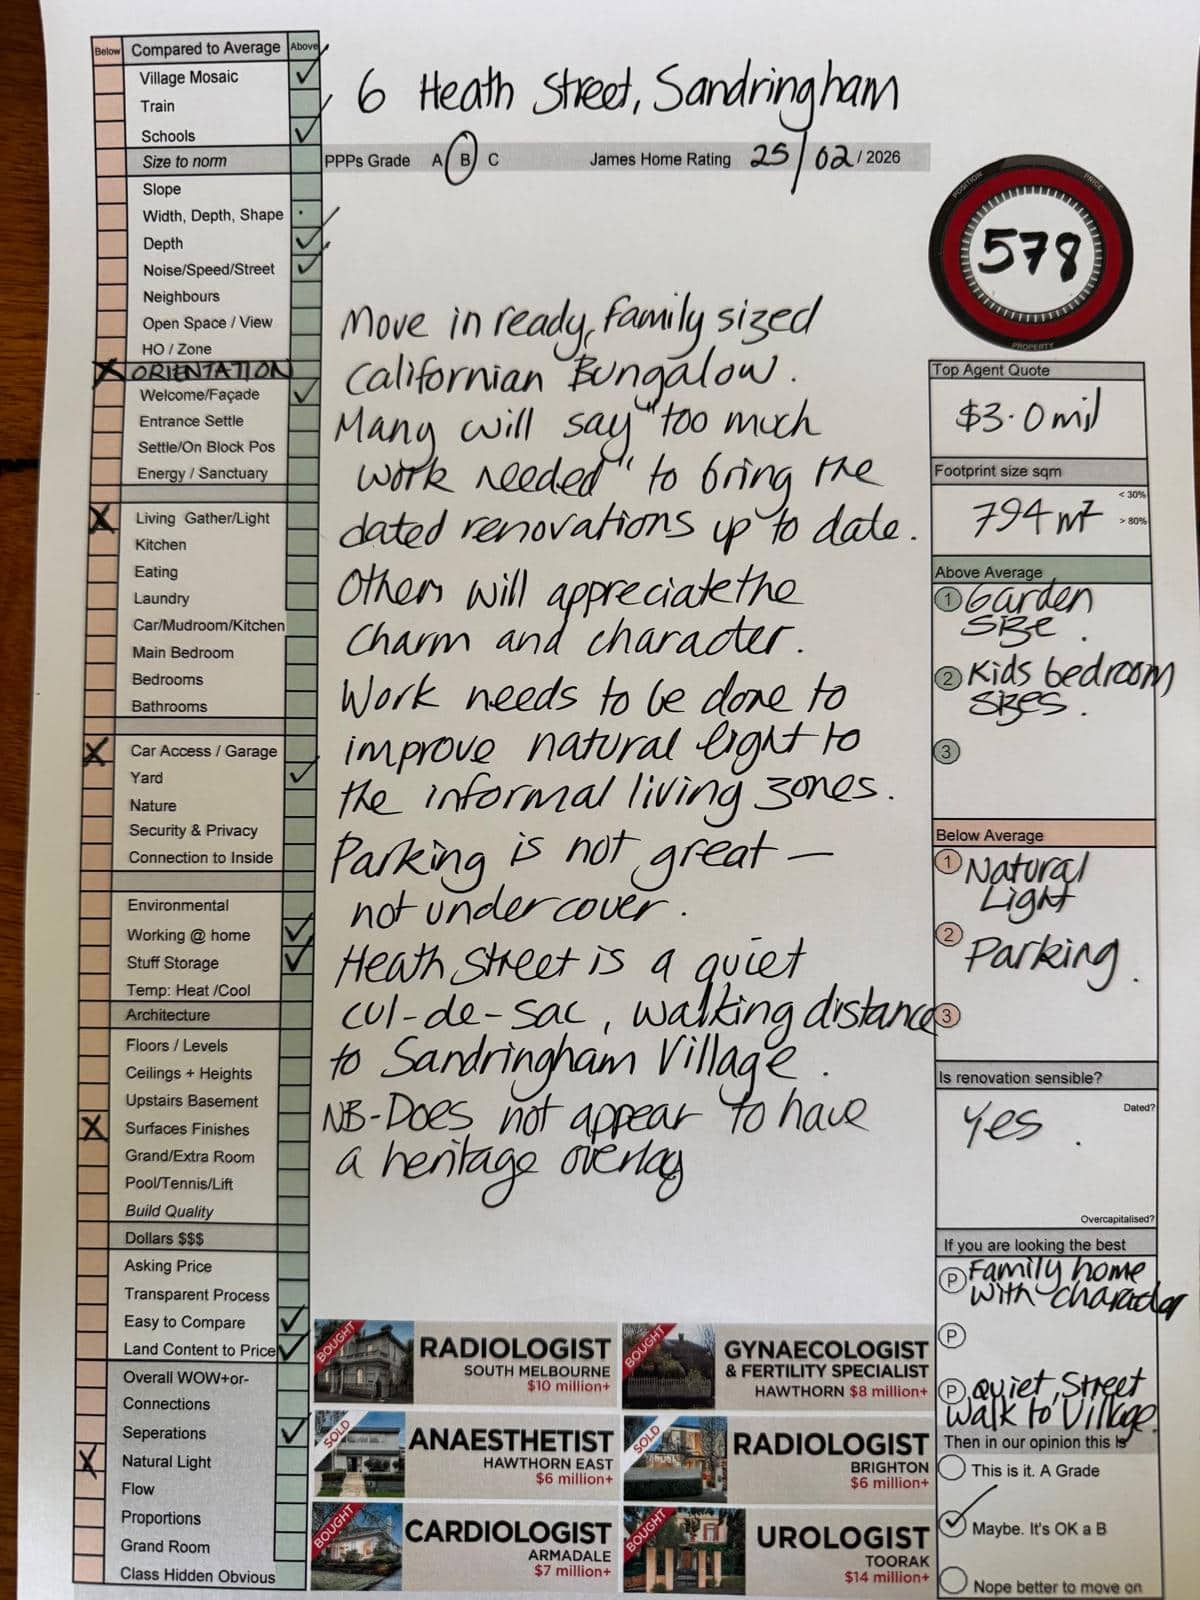 Below Compared to Average Above
Village Mosaic
Train
Schools
Size to norm
Slope
Width, Depth, Shape
Depth
Noise/Speed/Street
Neighbours
Open Space / View
HO / Zone
ORIENTATION
Welcome/Façade
Entrance Settle
Settle/On Block Pos
Energy / Sanctuary
Living Gather/Light
Kitchen
Eating
Laundry
Car/Mudroom/Kitchen
Main Bedroom
Bedrooms
Bathrooms
Car Access / Garage
Yard
Nature
Security & Privacy
Connection to Inside
Environmental
Working @ home
Stuff Storage
Temp: Heat /Cool
Architecture
Floors / Levels
Ceilings + Heights
Upstairs Basement
Surfaces Finishes
Grand/Extra Room
Pool/Tennis/Lift
Build Quality
Dollars $$$
Asking Price
Transparent Process
Easy to Compare
Land Content to Price
Overall WOW+or-
Connections
Seperations
Natural Light
Flow
Proportions
Grand Room
Class Hidden Obvious
6 Heath Street, Sandringham
PPPs Grade A B C James Home Rating 25/02/2026
Move in ready, family sized
Californian Bungalow.
Many will say "too much
work needed" to bring the
dated renovations up to date.
Others will appreciate the
charm and character.
Work needs to be done to
improve natural light to
the informal living zones.
Parking is not great –
not under cover.
Heath Street is a quiet
cul-de-sac, walking distance
to Sandringham Village.
NB-Does not appear to have
a heritage overlay
BOUGHT
RADIOLOGIST
SOUTH MELBOURNE
$10 million+
BOUGHT
GYNAECOLOGIST
& FERTILITY SPECIALIST
HAWTHORN $8 million+
SOLD
ANAESTHETIST
HAWTHORN EAST
$6 million+
SOLD
RADIOLOGIST
BRIGHTON
$6 million+
BOUGHT
CARDIOLOGIST
ARMADALE
$7 million+
BOUGHT
UROLOGIST
TOORAK
$14 million+
POSITION PRICE
578
PROPERTY
Top Agent Quote
$3.0 mil
Footprint size sqm
< 30%
794 m²
> 80%
Above Average
1 Garden
size.
2 Kids bedroom
sizes.
3
Below Average
1 Natural
Light
2 Parking.
3
Is renovation sensible?
Dated?
Yes.
Overcapitalised?
If you are looking the best
P Family home
with character
P
P quiet, Street
walk to Village.
Then in our opinion this is
This is it. A Grade
Maybe. It's OK a B
Nope better to move on